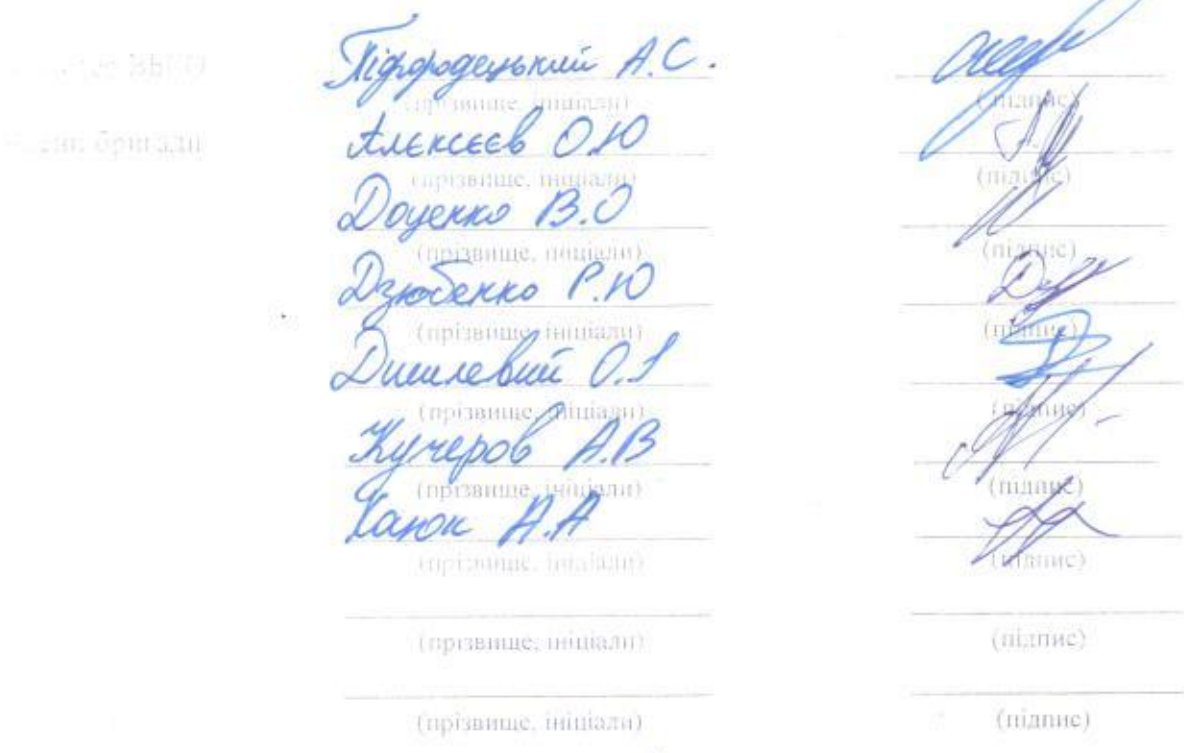 А.С.
(прізвище, ініціали) (підпис)
бригади Алєксєєв О.Ю
(прізвище, ініціали) (підпис)
Доценко В.О
(прізвище, ініціали) (підпис)
Дзюбенко Р.Ю
(прізвище, ініціали) (підпис)
Дишлевий О.І
(прізвище, ініціали) (підпис)
Кучеров А.В
(прізвище, ініціали) (підпис)
Ханюк А.А
(прізвище, ініціали) (підпис)
(прізвище, ініціали) (підпис)
(прізвище, ініціали) (підпис)